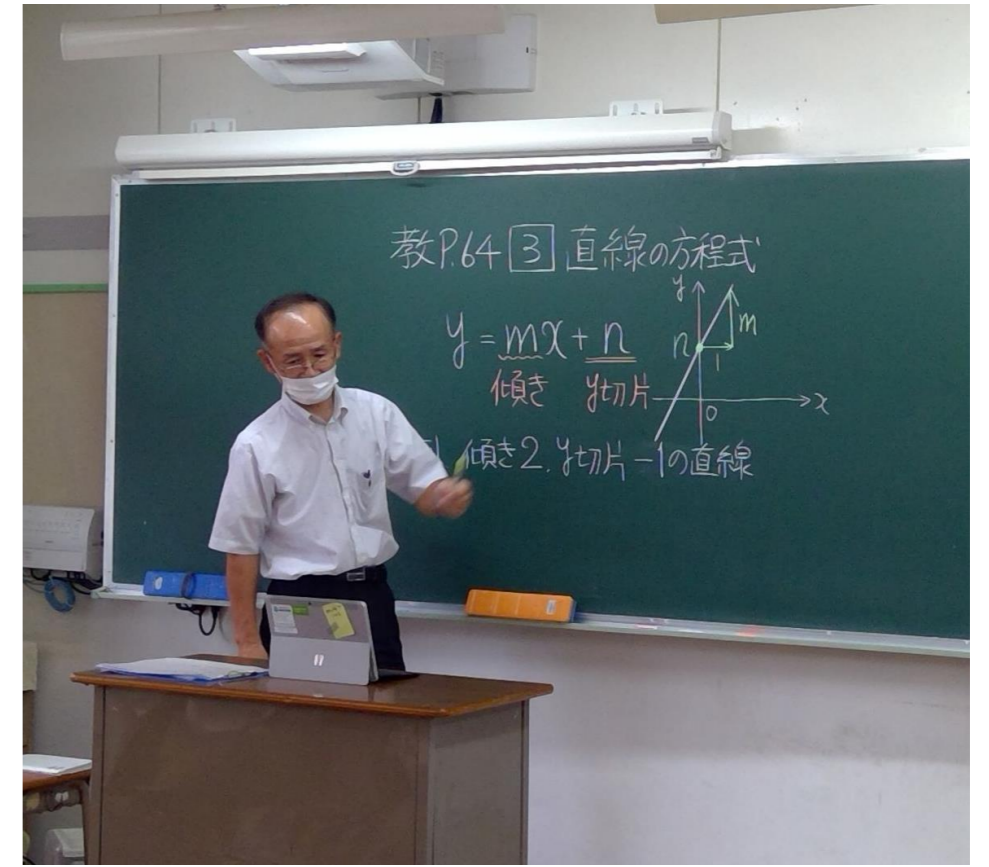 教P.64 3 直線の方程式
y = mx + n
傾き y切片
y
n
1
m
0
x
傾き2. y切片 -1の直線